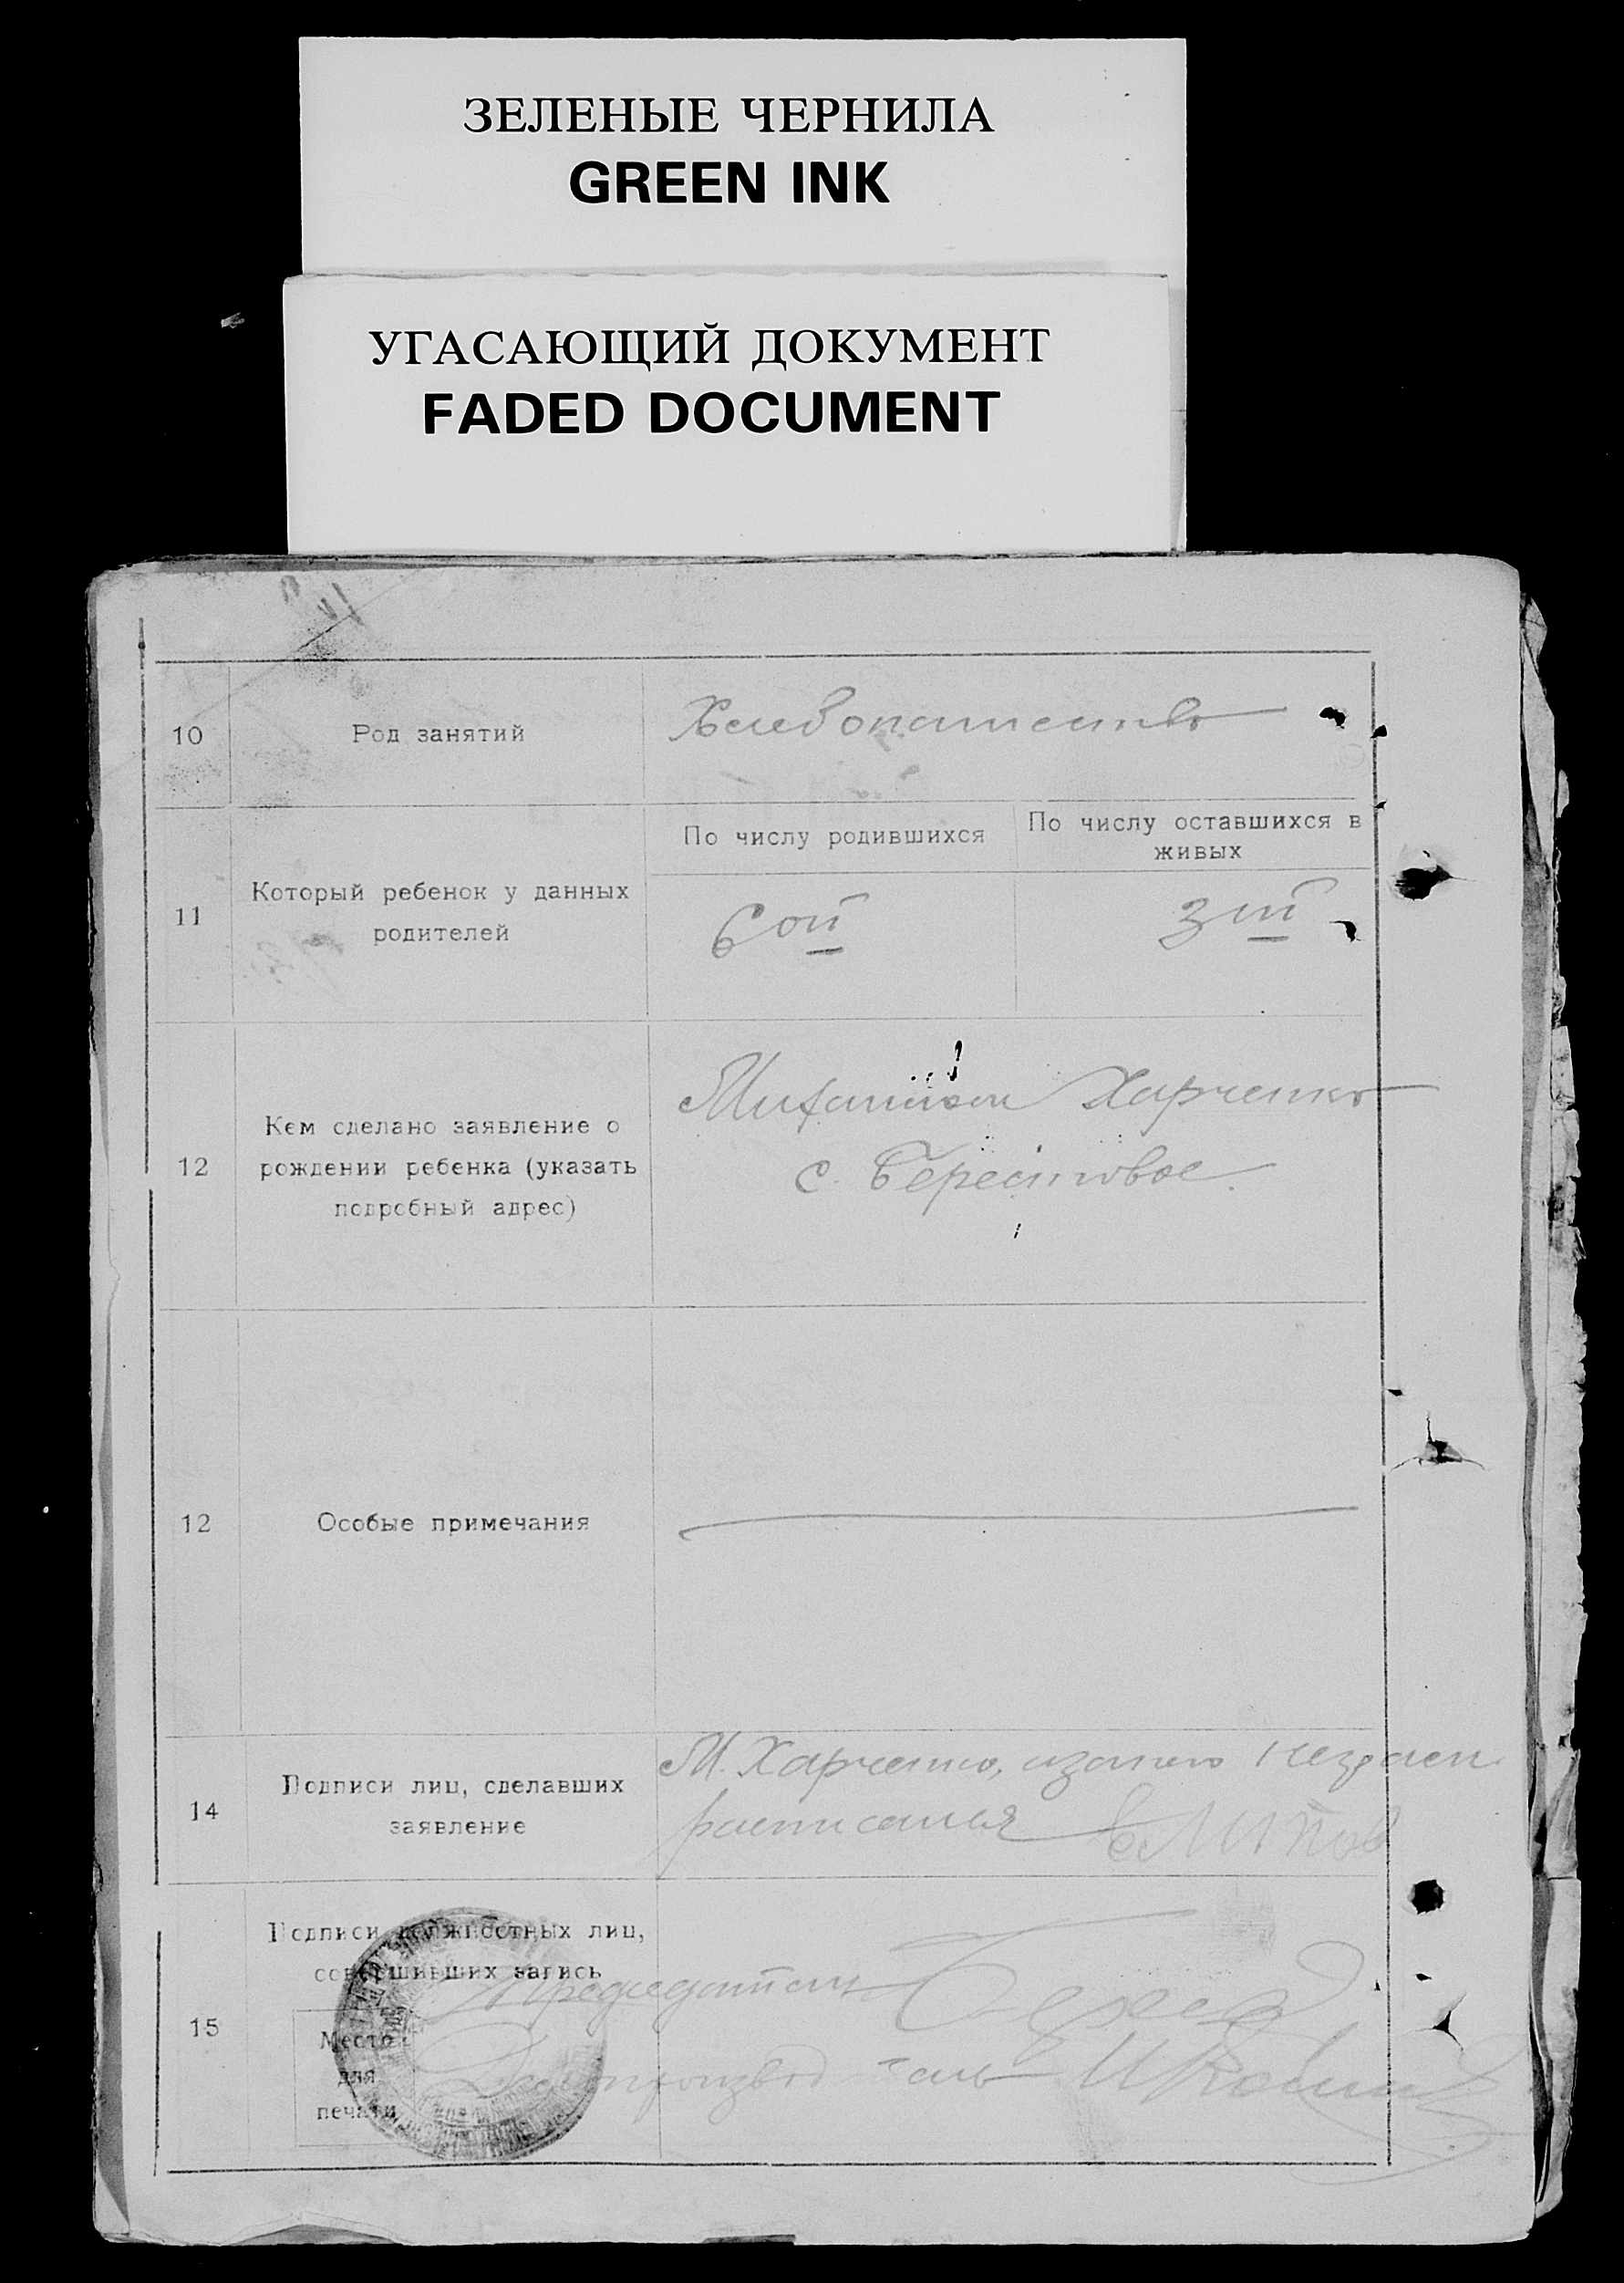 ЗЕЛЕНЫЕ ЧЕРНИЛА
GREEN INK
УГАСАЮЩИЙ ДОКУМЕНТ
FADED DOCUMENT
10 Род занятий Хлебопашество
11 Который ребенок у данных родителей
По числу родившихся
По числу оставшихся в
живых
6ой
3ий
12 Кем сделано заявление о
рождении ребенка (указать
подробный адрес)
Михаилом Харченко
с. Берестовое
12 Особые примечания
14 Подписи лиц, сделавших
заявление
М. Харченко, за него
расписался
15 Подписи должностных лиц,
совершивших запись
Место
для
печати
Председатель
Делопроизводитель